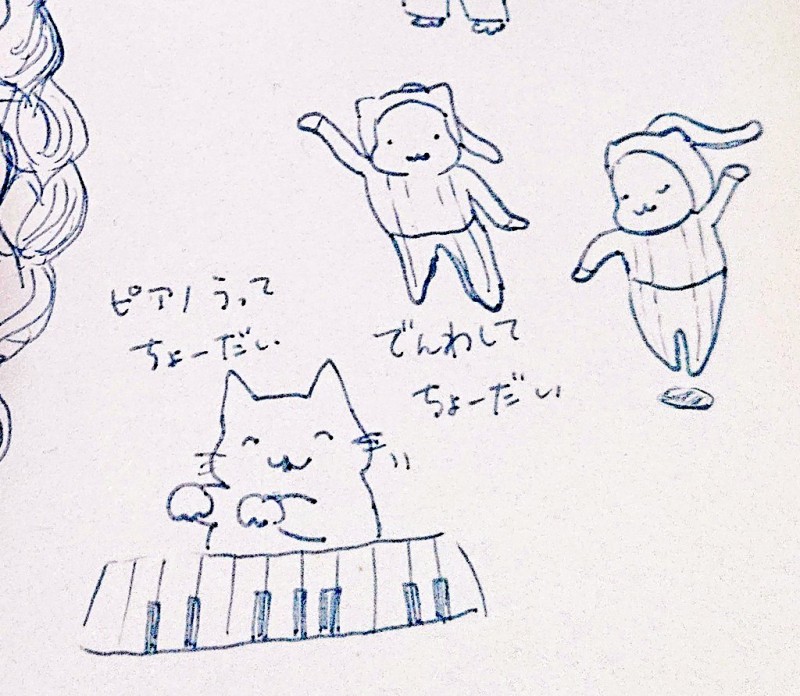 ピアノ うって
ちょーだい
でんわして
ちょーだい